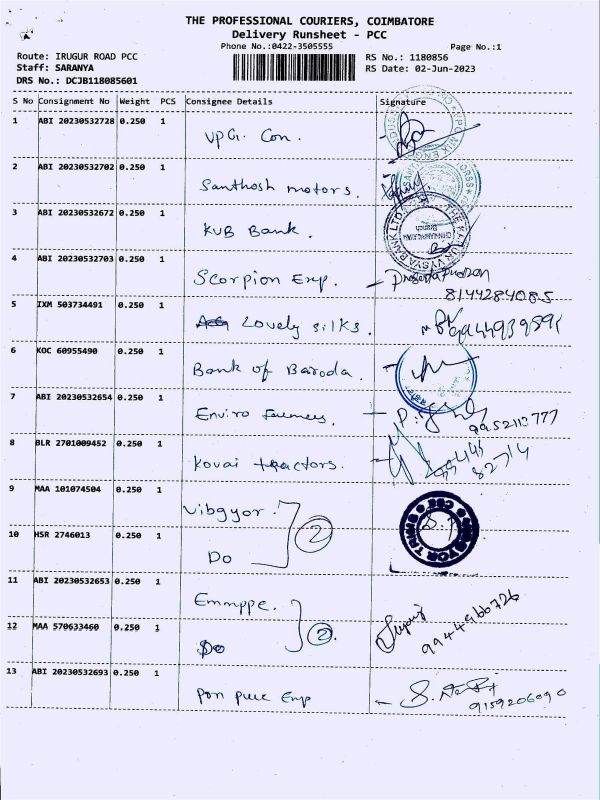 THE PROFESSIONAL COURIERS, COIMBATORE
Delivery Runsheet - PCC
Phone No.:0422-3505555 Page No.:1
Route: IRUGUR ROAD PCC RS No.: 1180856
Staff: SARANYA RS Date: 02-Jun-2023
DRS No.: DCJB118085601
S No Consignment No Weight PCS Consignee Details Signature
1 ABI 20230532728 0.250 1 VPG. Con.
2 ABI 20230532702 0.250 1 Santhosh motors.
3 ABI 20230532672 0.250 1 KVB Bank.
4 ABI 20230532703 0.250 1 Scorpion Exp.
8144284085
5 IXM 503734491 0.250 1 Lovely silks.
6 KOC 60955490 0.250 1 Bank of Baroda.
7 ABI 20230532654 0.250 1 Enviro
8 BLR 2701009452 0.250 1 Kovai tractors.
82714
9 MAA 101074504 0.250 1 Vibgyor.
2
10 HSR 2746013 0.250 1 Do
11 ABI 20230532653 0.250 1 Emmppe.
2.
9944966726
12 MAA 570633460 0.250 1 Do
13 ABI 20230532693 0.250 1 Pon pure Enp
9159206090